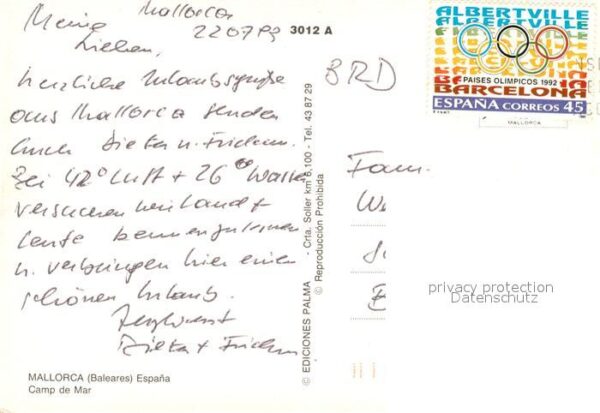 Mallorca
Meine 220793
Lieben,
herzliche Urlaubsgrüße
aus Mallorca senden
Euch Dieter u.
Bei 42° Luft + 26° Wasser
versuchen wir Land +
Leute kennenzulernen
u. verbringen hier einen
schönen Urlaub.
Dieter +
MALLORCA (Baleares) España
Camp de Mar
3012 A
© EDICIONES PALMA - Crta. Soller km 6,100 - Tel. 43 87 29
© Reproducción Prohibida
BRD
ALBERTVILLE
ALBERTVILLE
PAISES OLIMPICOS 1992
BARCELONA
ESPAÑA CORREOS 45
MALLORCA
Fam.
privacy protection
Datenschutz